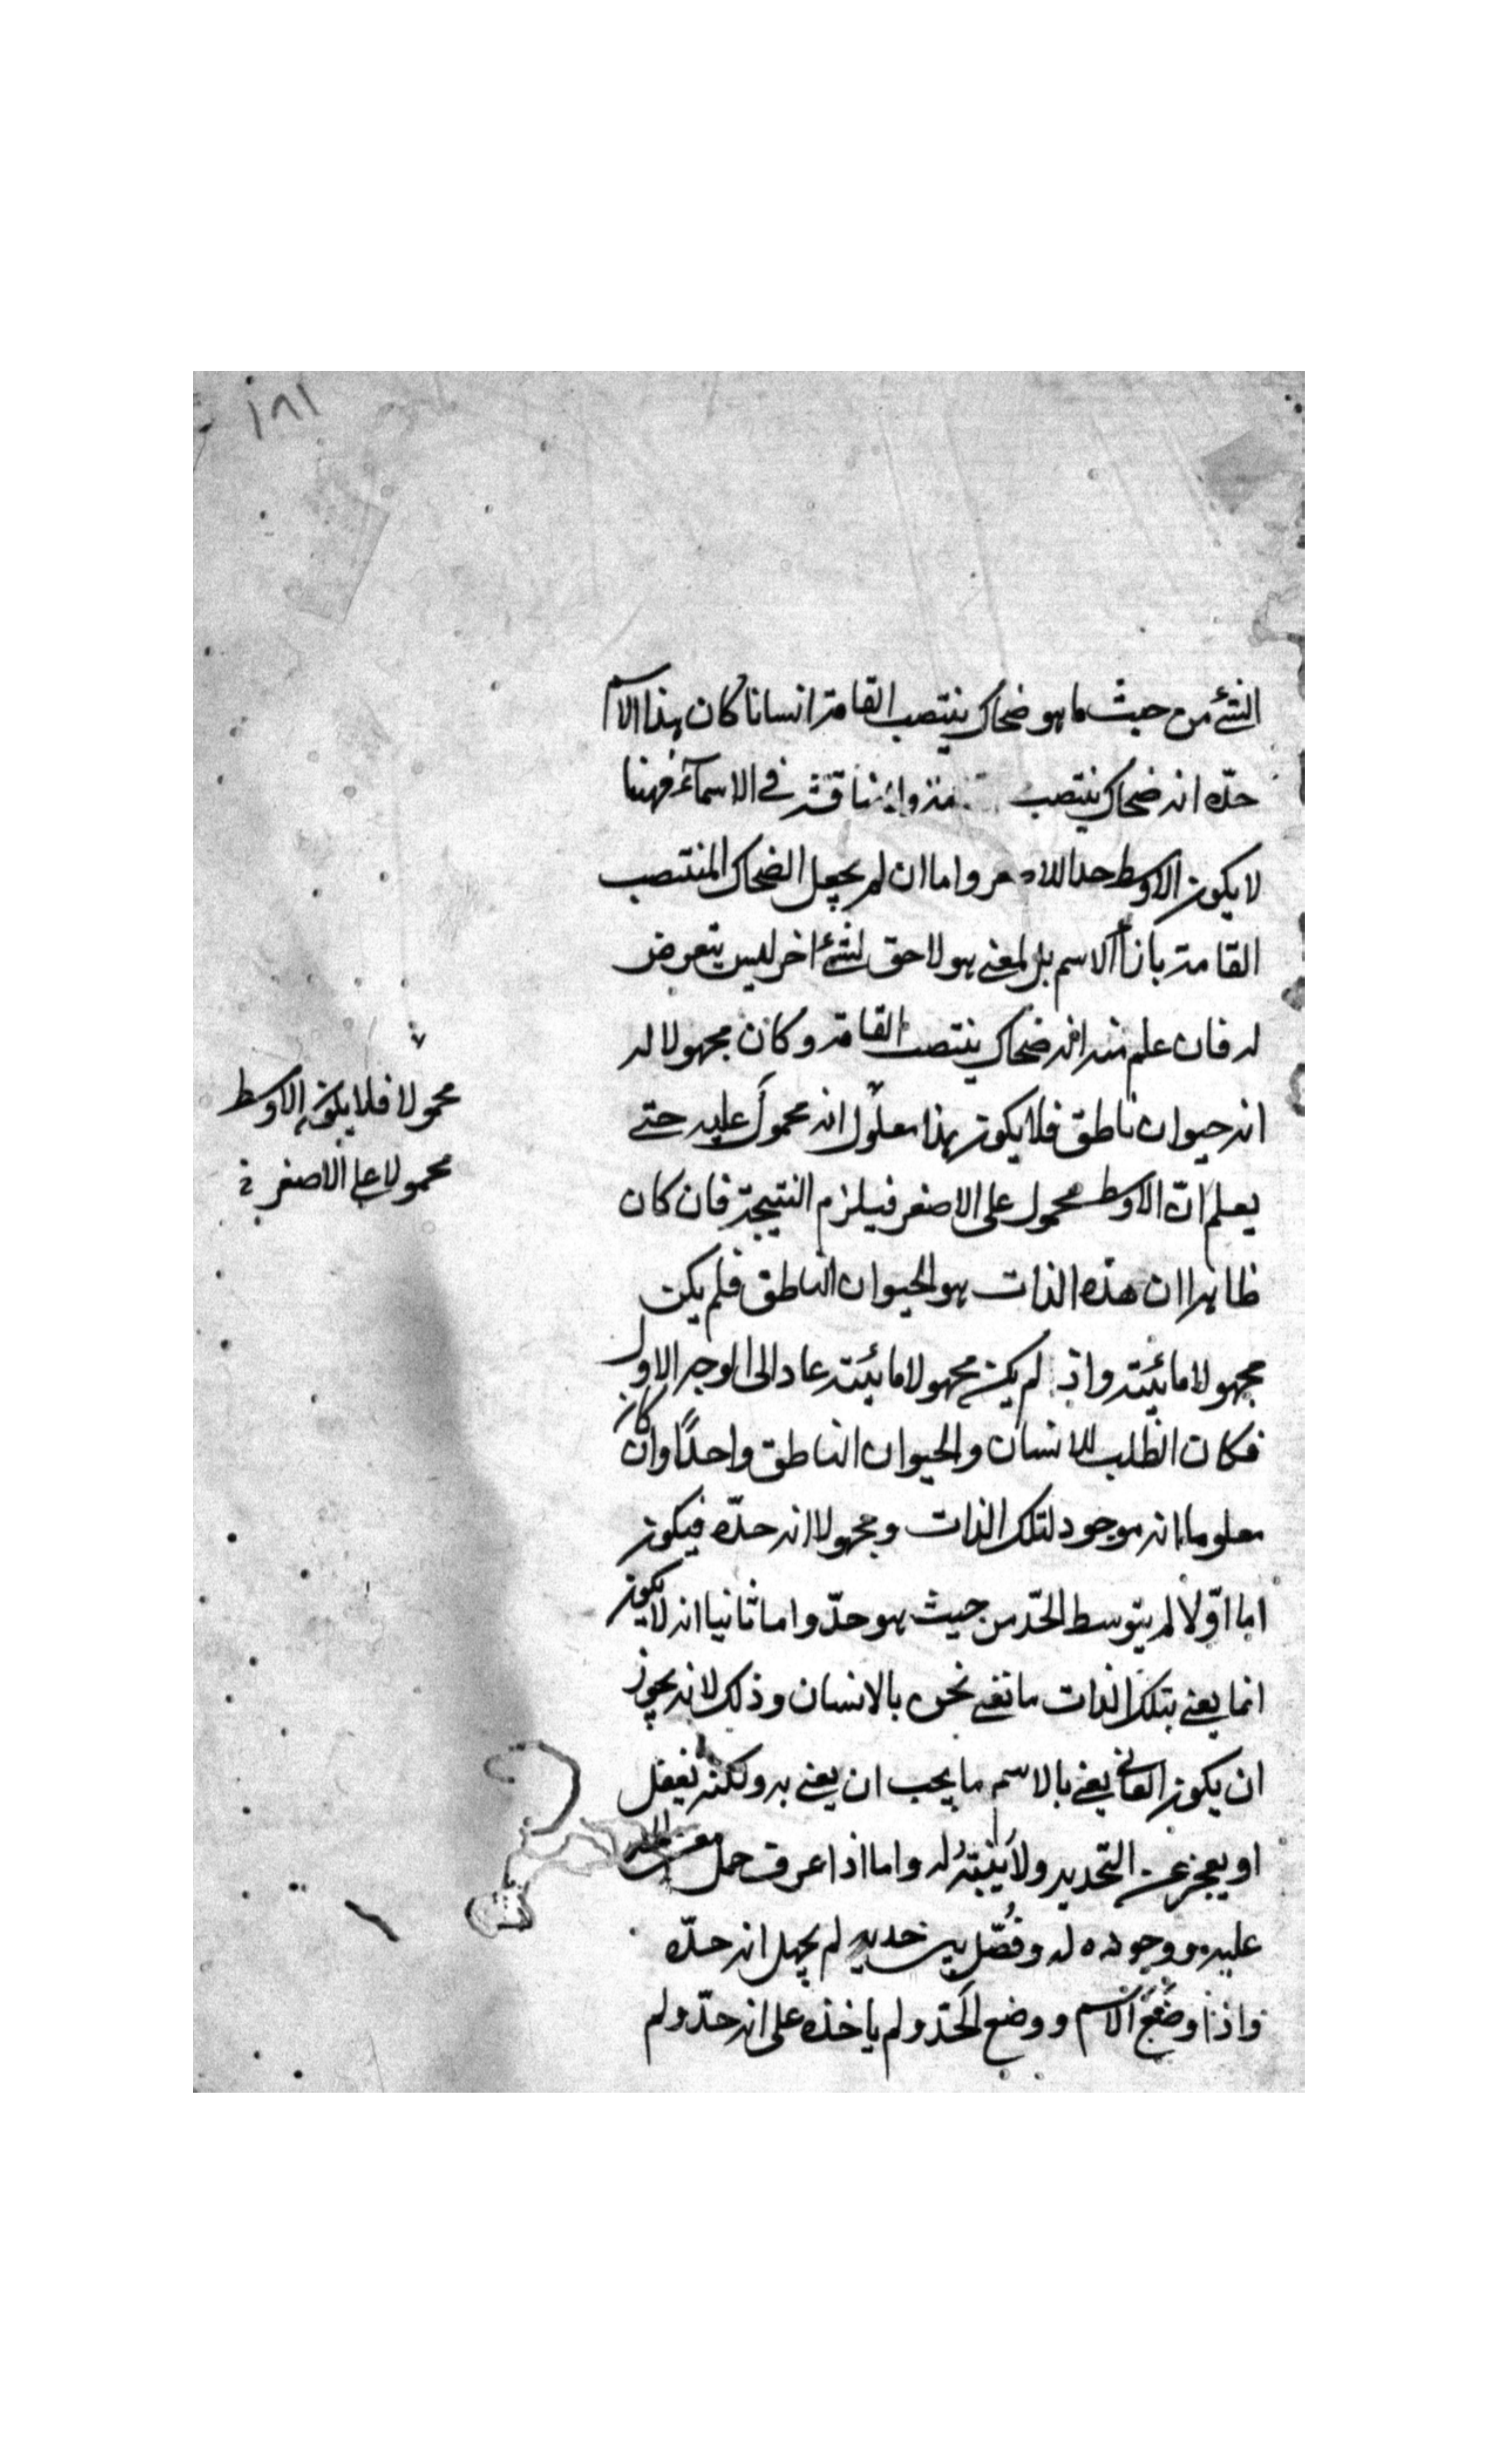 ١٨١
الشئ من حيث ما هو ضحاك منتصب القامة انسانا كان هذا الاسم
حدّه انه ضحاك منتصب في الاسماء فههنا
لا يكون الاوسط حدا للاصغر واما ان لم يجعل الضحاك المنتصب
القامة بازاء الاسم بل لمعنى هو لاحق لشئ اخر ليس يتعرض
له فان علم منه انه ضحاك منتصب القامة وكان مجهولا له
انه حيوان ناطق فلا يكون بهذا معلول انه محمول عليه حتى
محمولا فلا يكون الاوسط
محمولا على الاصغر
يعلم انّ الاوسط محمول على الاصغر فيلزم النتيجة فان كان
ظاهرا ان هذه الذات هو الحيوان الناطق فلم يكن
مجهولا مائيته واذ لم يكن مجهولا مائيته عاد الى الوجه الاول
فكان الطلب للانسان والحيوان الناطق واحدًا وان كان
معلوما انه موجود لتلك الذات ومجهولا انه حدّه فيكون
اما اوّلا لم يتوسط الحدّ من حيث هو حدّ واما ثانيا انه لا يكون
انما يعنى بتلك الذات ما نعنى نحن بالانسان وذلك لانه يجوز
ان يكون العانى يعنى بالاسم ما يجب ان يعنى به ولكنه يغفل
او يعجز عن التحديد ولا ينبته له واما اذا عرف حمل معنى
عليه ووجوده له وفصّل بين حديه لم يجهل انه حدّه
واذا وضع الاسم ووضع الحد ولم ياخذه على انه حدّ ولم